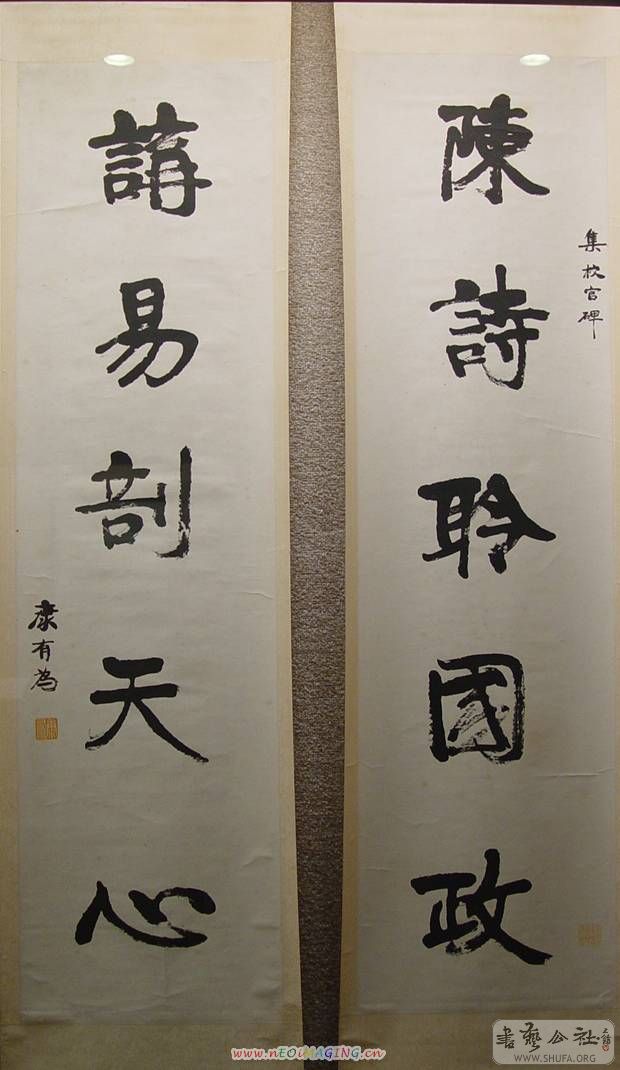 陳詩聆國政
集校官碑
講易剖天心
康有為
www.nEOiMAGiNG.cn
書藝公社
WWW.SHUFA.ORG